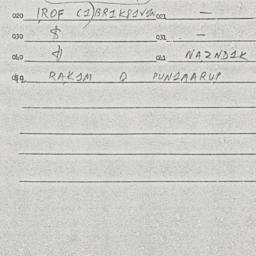 020 IROF (1) BR1K81V1N 021 —
030 $ 031 —
040 041 NAZND1K
RAK1M D PUNIMARUP